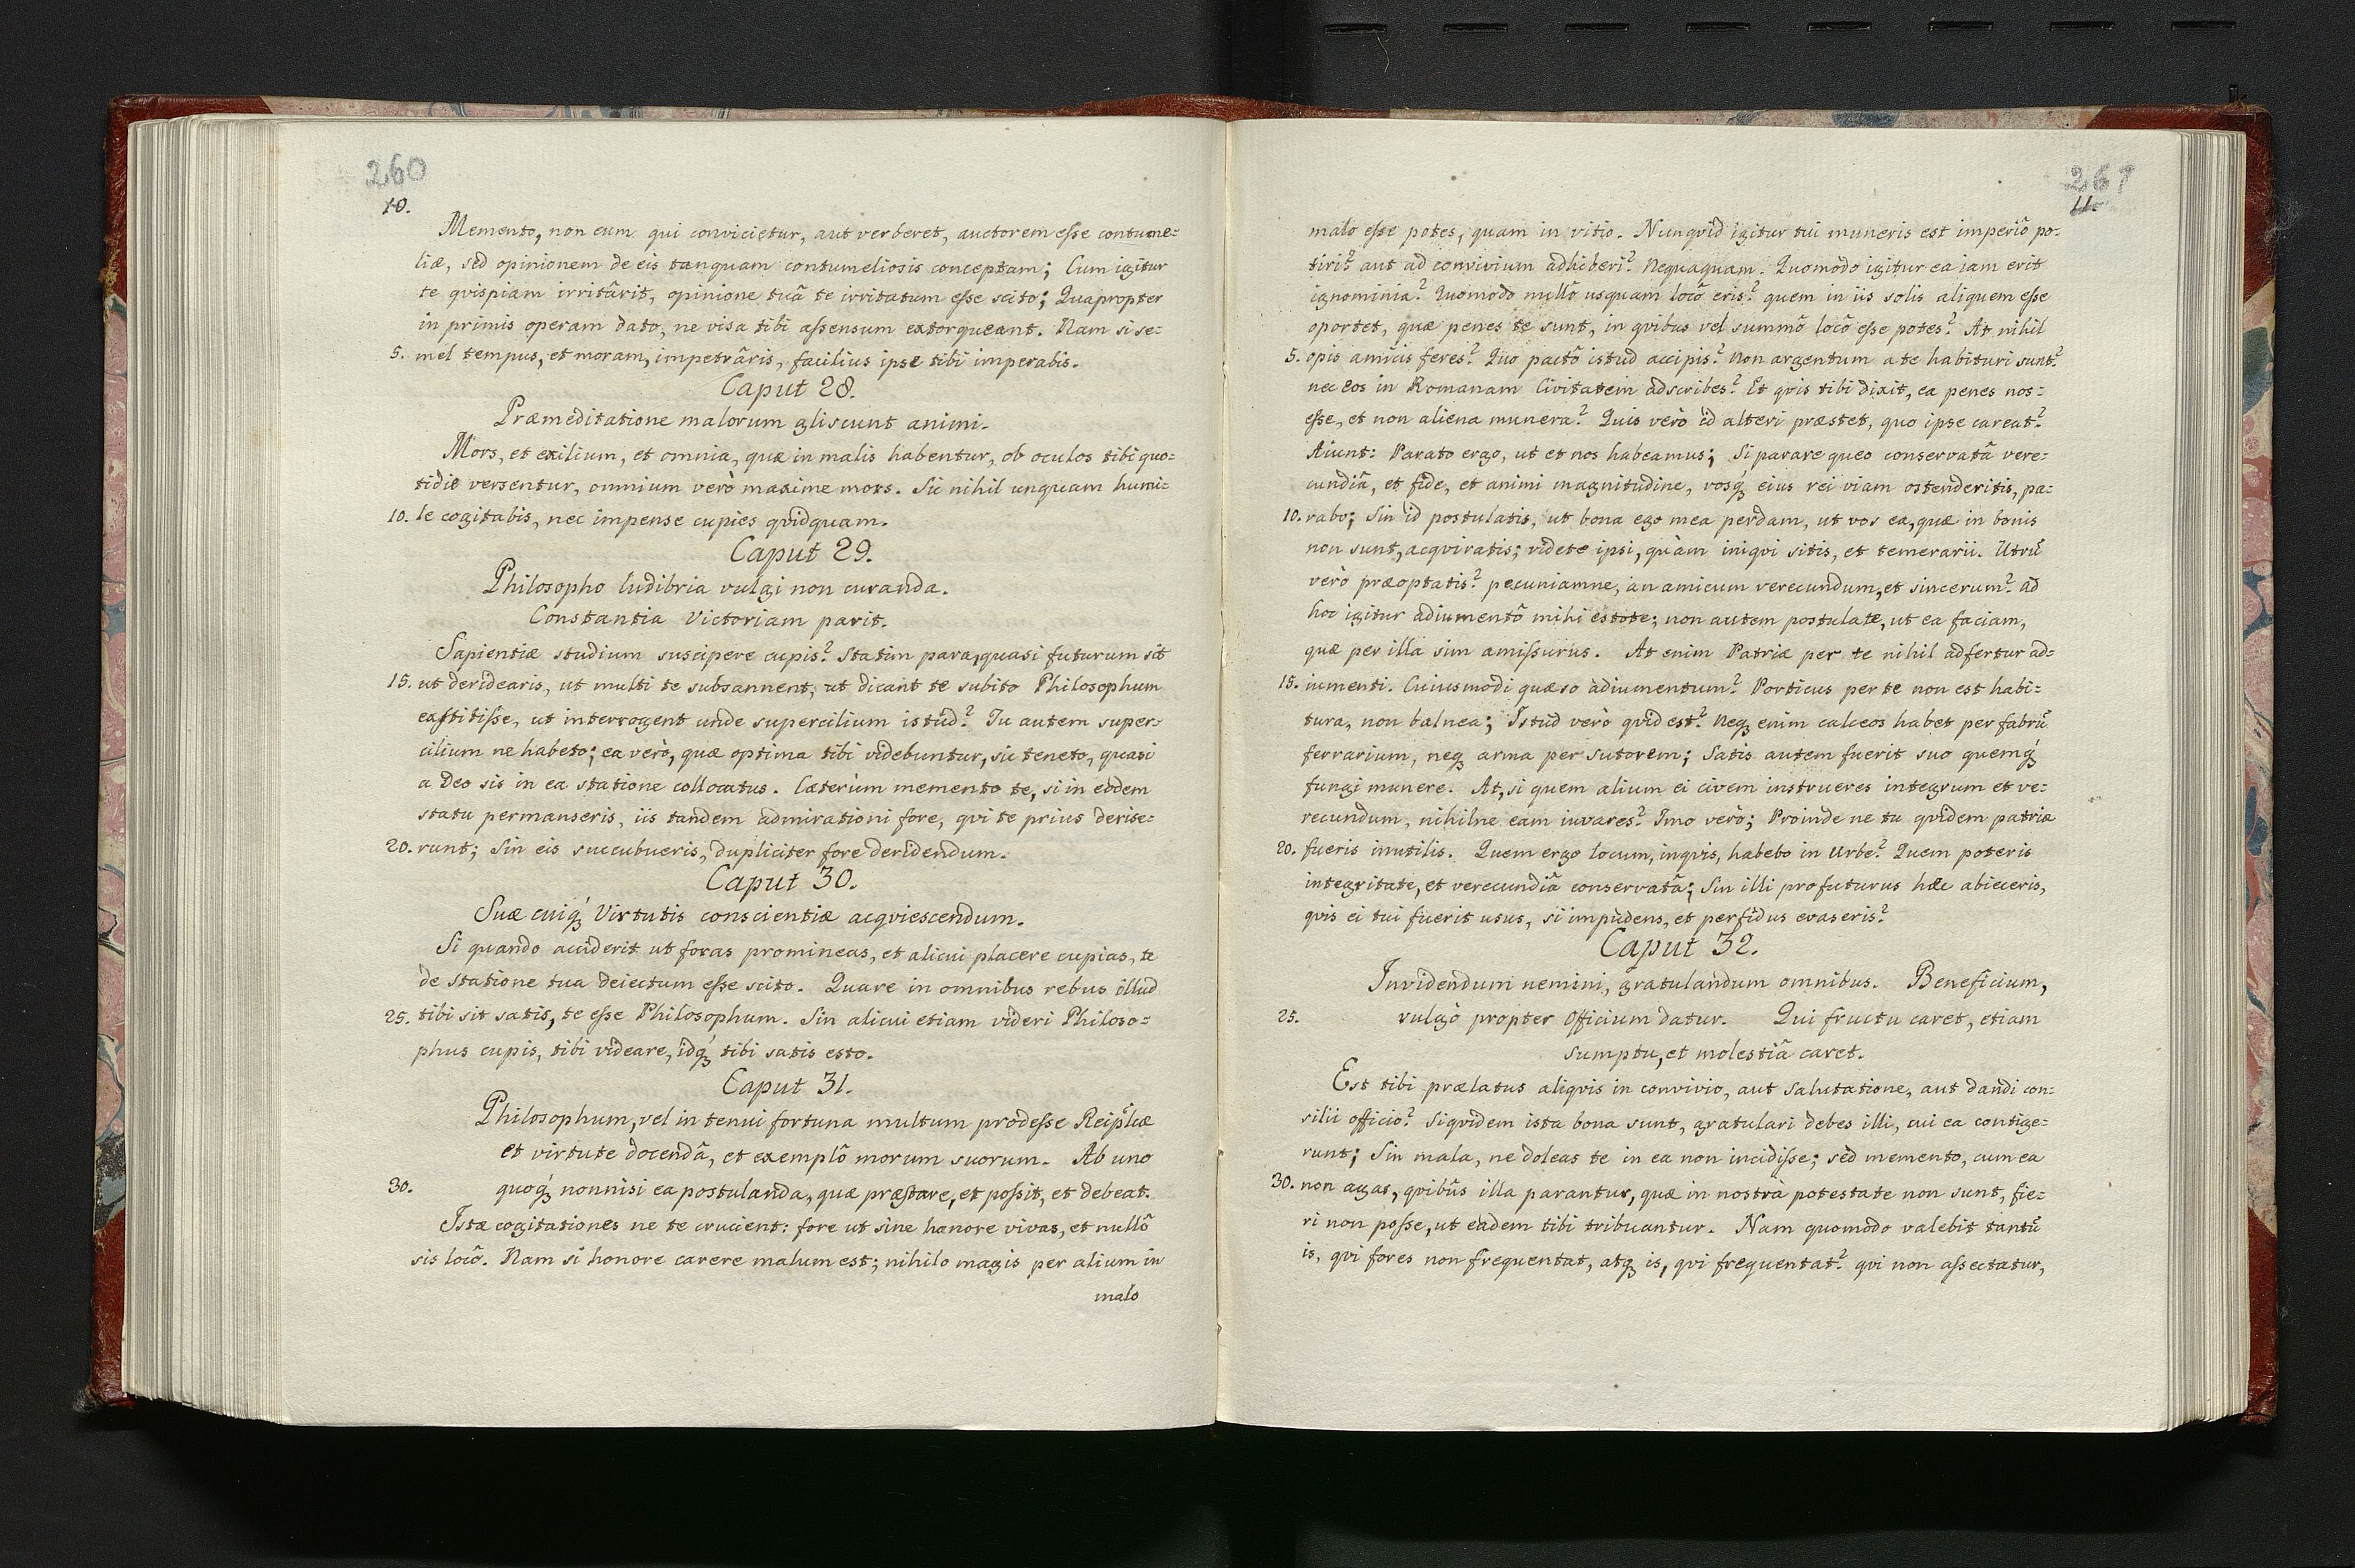 260
10.
Memento, non eum qui convicietur, aut verberet, auctorem eſse contume=
liæ, sed opinionem de eis tanquam contumeliosis conceptam; Cum igitur
te qvispiam irritârit, opinione tuâ te irritatum eſse scito; Quapropter
in primis operam dato, ne visa tibi aſsensum extorqueant. Nam si se=
5. mel tempus, et moram, impetrâris, facilius ipse tibi imperabis.
Caput 28.
Præmeditatione malorum gliscunt animi.
Mors, et exilium, et omnia, quæ in malis habentur, ob oculos tibi quo=
tidie versentur, omnium verò maxime mors. Sic nihil unquam humi=
10. le cogitabis, nec impense cupies qvidquam.
Caput 29.
Philosopho ludibria vulgi non curanda.
Constantia Victoriam parit.
Sapientiæ studium suscipere cupis? Statim para, quasi futurum sit
15. ut deridearis, ut multi te subsannent, ut dicant te subito Philosophum
exſtitiſse, ut interrogent unde supercilium istud? Tu autem super=
cilium ne habeto; ea verò, quæ optima tibi videbuntur, sic teneto, quasi
a Deo sis in ea statione collocatus. Cæterùm memento te, si in eodem
statu permanseris, iis tandem admirationi fore, qvi te prius derise=
20. runt; Sin eis succubueris, dupliciter fore deridendum.
Caput 30.
Suæ cuiq́ Virtutis conscientiæ acqviescendum.
Si quando acciderit ut foras promineas, et alicui placere cupias, te
de statione tua deiectum eſse scito. Quare in omnibus rebus illud
25. tibi sit satis, te eſse Philosophum. Sin alicui etiam videri Philoso=
phus cupis, tibi videare, idq́ tibi satis esto.
Caput 31.
Philosophum, vel in tenui fortuna multum prodeſse Reiplꝭcæ
et virtute docendâ, et exemplô morum suorum. Ab uno
30. quoq́ nonnisi ea postulanda, quæ præſtare, et poſsit, et debeat.
Istæ cogitationes ne te crucient: fore ut sine honore vivas, et nullô
sis locô. Nam si honore carere malum est; nihilo magis per alium in
malo
261
11.
malo eſse potes, quam in vitio. Nunqvid igitur tui muneris est imperiô po=
tiri? aut ad convivium adhiberi? Nequaquam. Quomodo igitur ea iam erit
ignominia? Quomodo nullô usquam locô eris? quem in iis solis aliquem eſse
oportet, quæ penes te sunt, in qvibus vel summô locô eſse potes? At nihil
5. opis amicis feres? Quo pactô istud accipis? Non argentum a te habituri sunt?
nec eos in Romanam Civitatem adscribes? Et qvis tibi dixit, ea penes nos=
eſse, et non aliena munera? Quis verò id alteri præstet, quo ipse careat?
Aiunt: Parato ergo, ut et nos habeamus; Si parare queo conservatâ vere=
cundiâ, et fide, et animi magnitudine, vosq́ eius rei viam ostenderitis, pa=
10. rabo; Sin id postulatis, ut bona ego mea perdam, ut vos ea, quæ in bonis
non sunt, acqviratis; videte ipsi, quàm iniqvi sitis, et temerarii. Utrū
verò præoptatis? pecuniamne, an amicum verecundum, et sincerum? ad
hoc igitur adiumentô mihi estote; non autem postulate, ut ea faciam,
quæ per illa sim amiſsurus. At enim Patriæ per te nihil adfertur ad=
15. iumenti. Cuiusmodi quæso adiumentum? Porticus per te non est habi=
tura, non balnea; Istud verò qvid est? Neq enim calceos habet per fabrū
ferrarium, neq arma per sutorem; Satis autem fuerit suo quemq́
fungi munere. At, si quem alium ei civem instrueres integrum et ve=
recundum, nihilne eam iuvares? Imo verò; Proinde ne tu qvidem patriæ
20. fueris inutilis. Quem ergo locum, inqvis, habebo in Urbe? Quem poteris
integritate, et verecundiâ conservatâ; Sin illi profuturus hæc abieceris,
qvis ei tui fuerit usus, si impudens, et perfidus evaseris?
Caput 32.
Invidendum nemini, gratulandum omnibus. Beneficium,
25. vulgò propter Officium datur. Qui fructu caret, etiam
sumptu, et molestiâ caret.
Est tibi prælatus aliqvis in convivio, aut Salutatione, aut dandi con=
silii officio? Siqvidem ista bona sunt, gratulari debes illi, cui ea contige=
runt; Sin mala, ne doleas te in ea non incidiſse; sed memento, cum ea
30. non agas, qvibus illa parantur, quæ in nostrâ potestate non sunt, fie=
ri non poſse, ut eadem tibi tribuantur. Nam quomodo valebit tantū
is, qvi fores non frequentat, atq is, qvi frequentat? qvi non aſsectatur,